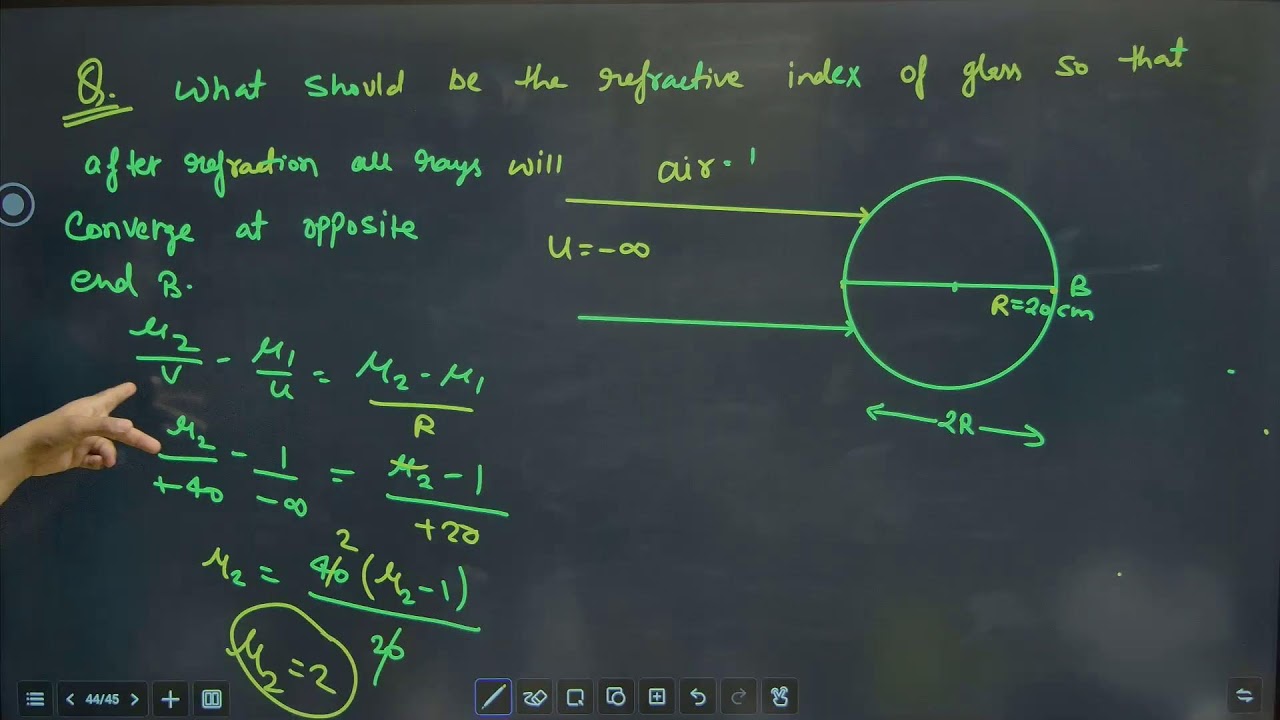 Q. What should be the refractive index of glass so that
after refraction all rays will
Converge at opposite
end B.
air = 1
u = -∞
B
R = 20 cm
2R
μ₂/v - μ₁/u = μ₂ - μ₁/R
μ₂/+40 - 1/-∞ = μ₂ - 1/+20
2
μ₂ = 40 (μ₂ - 1)/20
μ₂ = 2
44/45